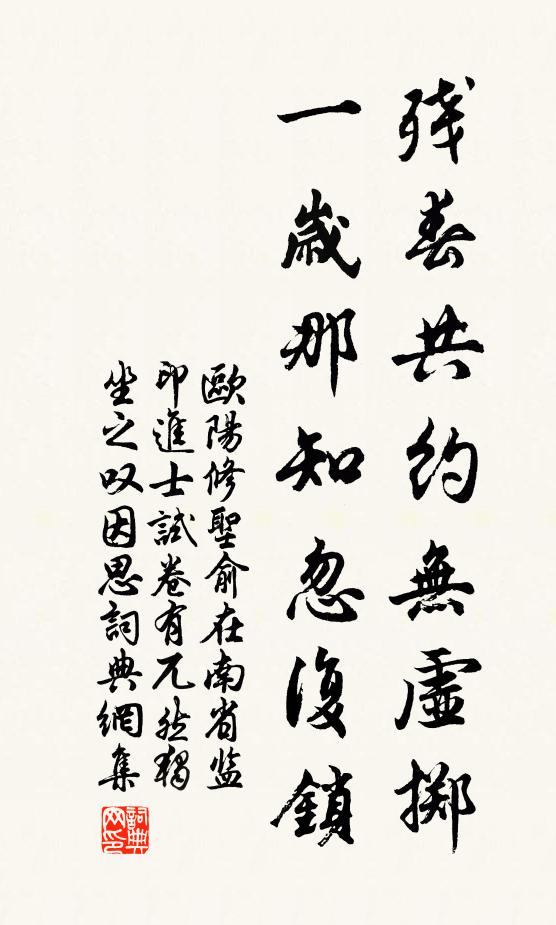 残春共約無虛擲
一歲那知忽復鎖
歐陽修聖俞在南省监
印進士試卷有兀然獨
坐之叹因思詞典網集
詞典
网印